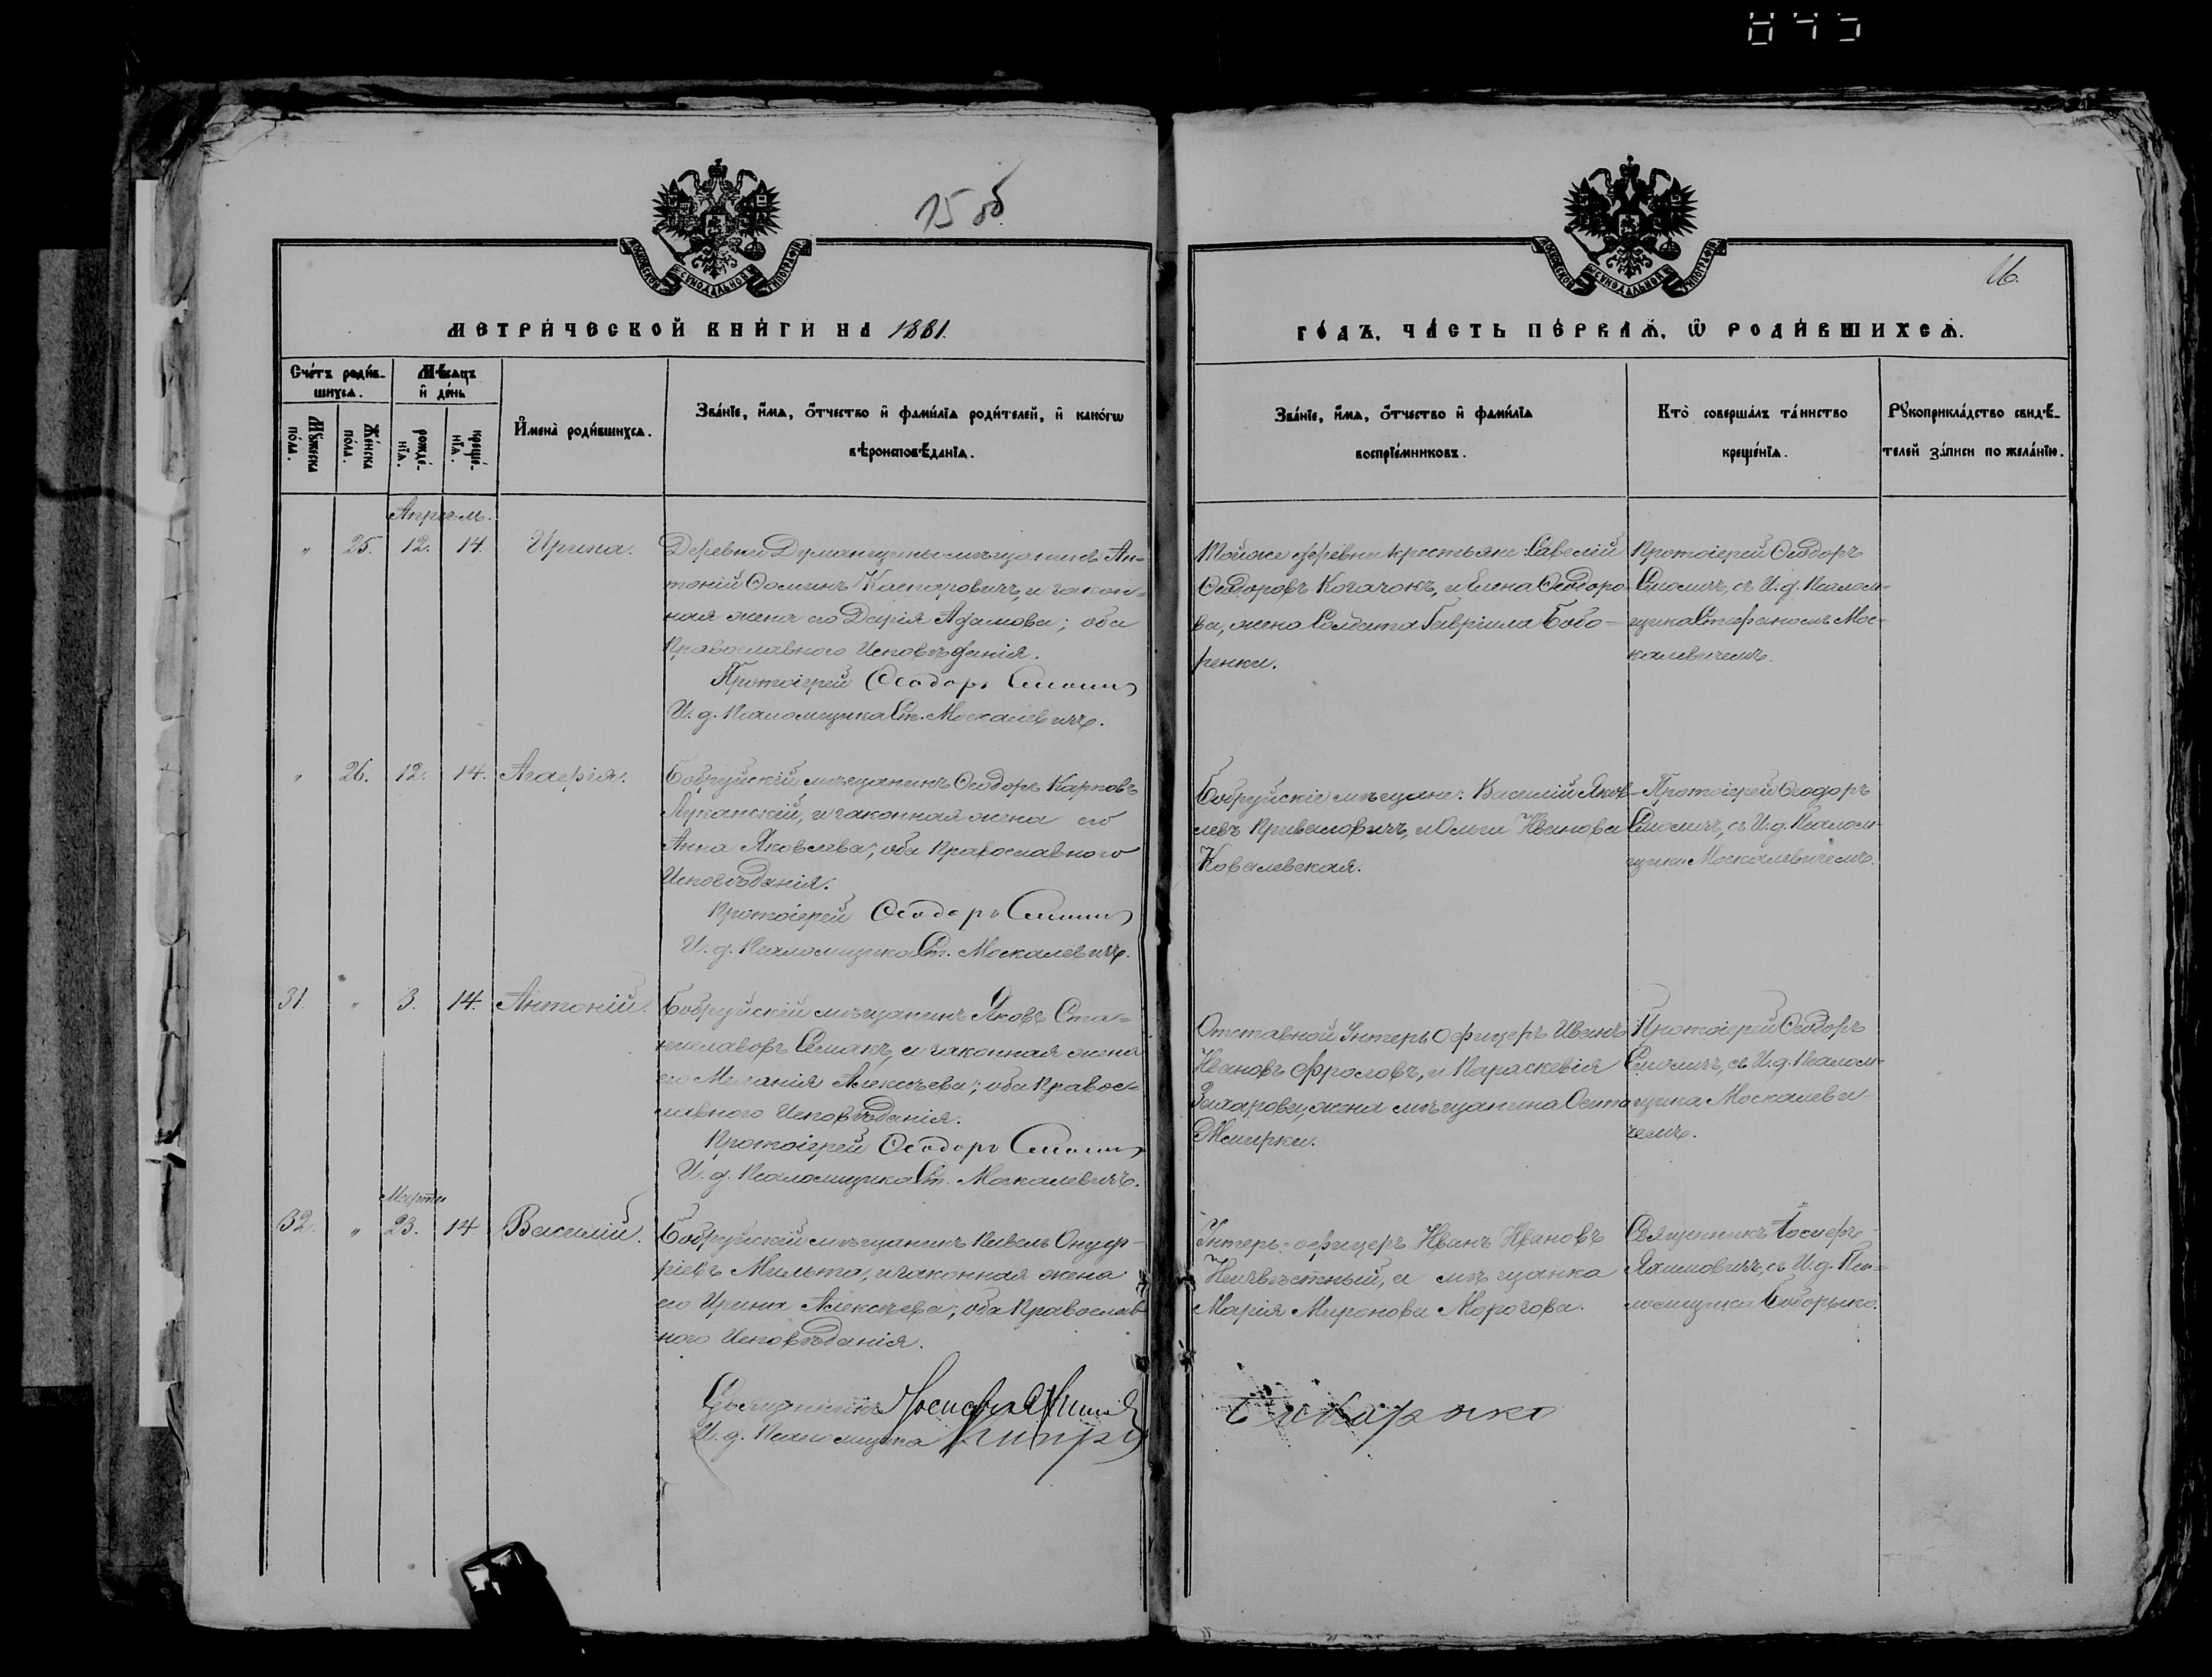 15 об
16.
МОСКОВСКОЙ СѴНОДАЛЬНОЙ ТИПОГРАФІИ
МОСКОВСКОЙ СѴНОДАЛЬНОЙ ТИПОГРАФІИ
МЕТРИ́ЧЕСКОЙ КНИ́ГИ НА 1881.
ГО́ДЪ, ЧА́СТЬ ПЕ́РВАѦ, Ѡ РОДИ́ВШИХСѦ.
Счéтъ роди́в-
шихсѧ.
Мꙋ́жеска по́ла.
Же́нска по́ла.
Мѣ́сѧцъ и де́нь
рожде́-нїѧ.
креще́-нїѧ.
И҆мена̀ роди́вшихсѧ.
Зва́нїе, и҆́мѧ, ѻ҆́тчество и҆ фами́лїѧ роди́телей, и҆ како́гѡ
вѣроисповѣ́данїѧ.
Зва́нїе, и҆́мѧ, ѻ҆́тчество и҆ фами́лїѧ
воспрїе́мниковъ.
Кто̀ соверша́лъ та́инство
креще́нїѧ.
Рꙋкоприкла́дство свидѣ́-
телей за́писи по жела́нїю.
Апрѣль.
" 25. 12. 14. Ирина.
Деревни Думанщины мѣщанинъ Ан=
тоній Ѳоминъ Каспаровичъ, и закон=
ная жена его Дарія Адамова; оба
Православного Исповѣданія.
Протоіерей Ѳеодоръ Смоличъ
И. д. Псаломщика Ст. Москалевичъ.
Тойже деревни крестьяне: Савелій
Ѳеодоровъ Козачокъ, и Елена Ѳеодоро-
ва, жена Солдата Гавріила Бобо-
ренки.
Протоіерей Ѳеодоръ
Смоличъ, съ И. д. Псалом=
щика Стефаномъ Мос-
калевичемъ.
" 26. 12. 14. Агафія.
Бобруйскій мѣщанинъ Ѳеодоръ Карповъ
Луканскій, и законная жена его
Анна Яковлева; оба Православного
Исповѣданія.
Протоіерей Ѳеодоръ Смоличъ
И. д. Псаломщика Ст. Москалевичъ.
Бобруйскіе мѣщане: Василій Яков-
левъ Привалович, и Ольга Иванова
Ковалевская.
Протоіерей Ѳеодоръ
Смоличъ, съ И. д. Псалом-
щика Москалевичемъ.
31. " 3. 14. Антоній.
Бобруйскій мѣщанинъ Яковъ Ста=
ниславовъ Семакъ, и законная жена
его Меланія Алексѣева; оба Правос=
лавного Исповѣданія.
Протоіерей Ѳеодоръ Смоличъ
И. д. Псаломщика Ст. Москалевичъ.
Отставной Унтеръ Офицеръ Иванъ
Ивановъ Фроловъ, и Параскевія
Захарова, жена мѣщанина Осипа
Протоіерей Ѳеодоръ
Смоличъ, съ И. д. Псалом-
щика Москалеви-
чемъ.
Марта
32. " 23. 14 Василій.
Бобруйскій мѣщанинъ Павелъ Онуф-
ріевъ Мильто, и законная жена
его Ирина Алексѣева; оба Православ-
ного Исповѣданія.
Священникъ Іосифъ
И. д. Псаломщика
Унтеръ=офицеръ Иванъ Ивановъ
Неизвѣстный, и мѣщанка
Марія Миронова Морозова.
Священникъ Іосифъ
Яхимовичъ, съ И. д. Пса=
ломщика